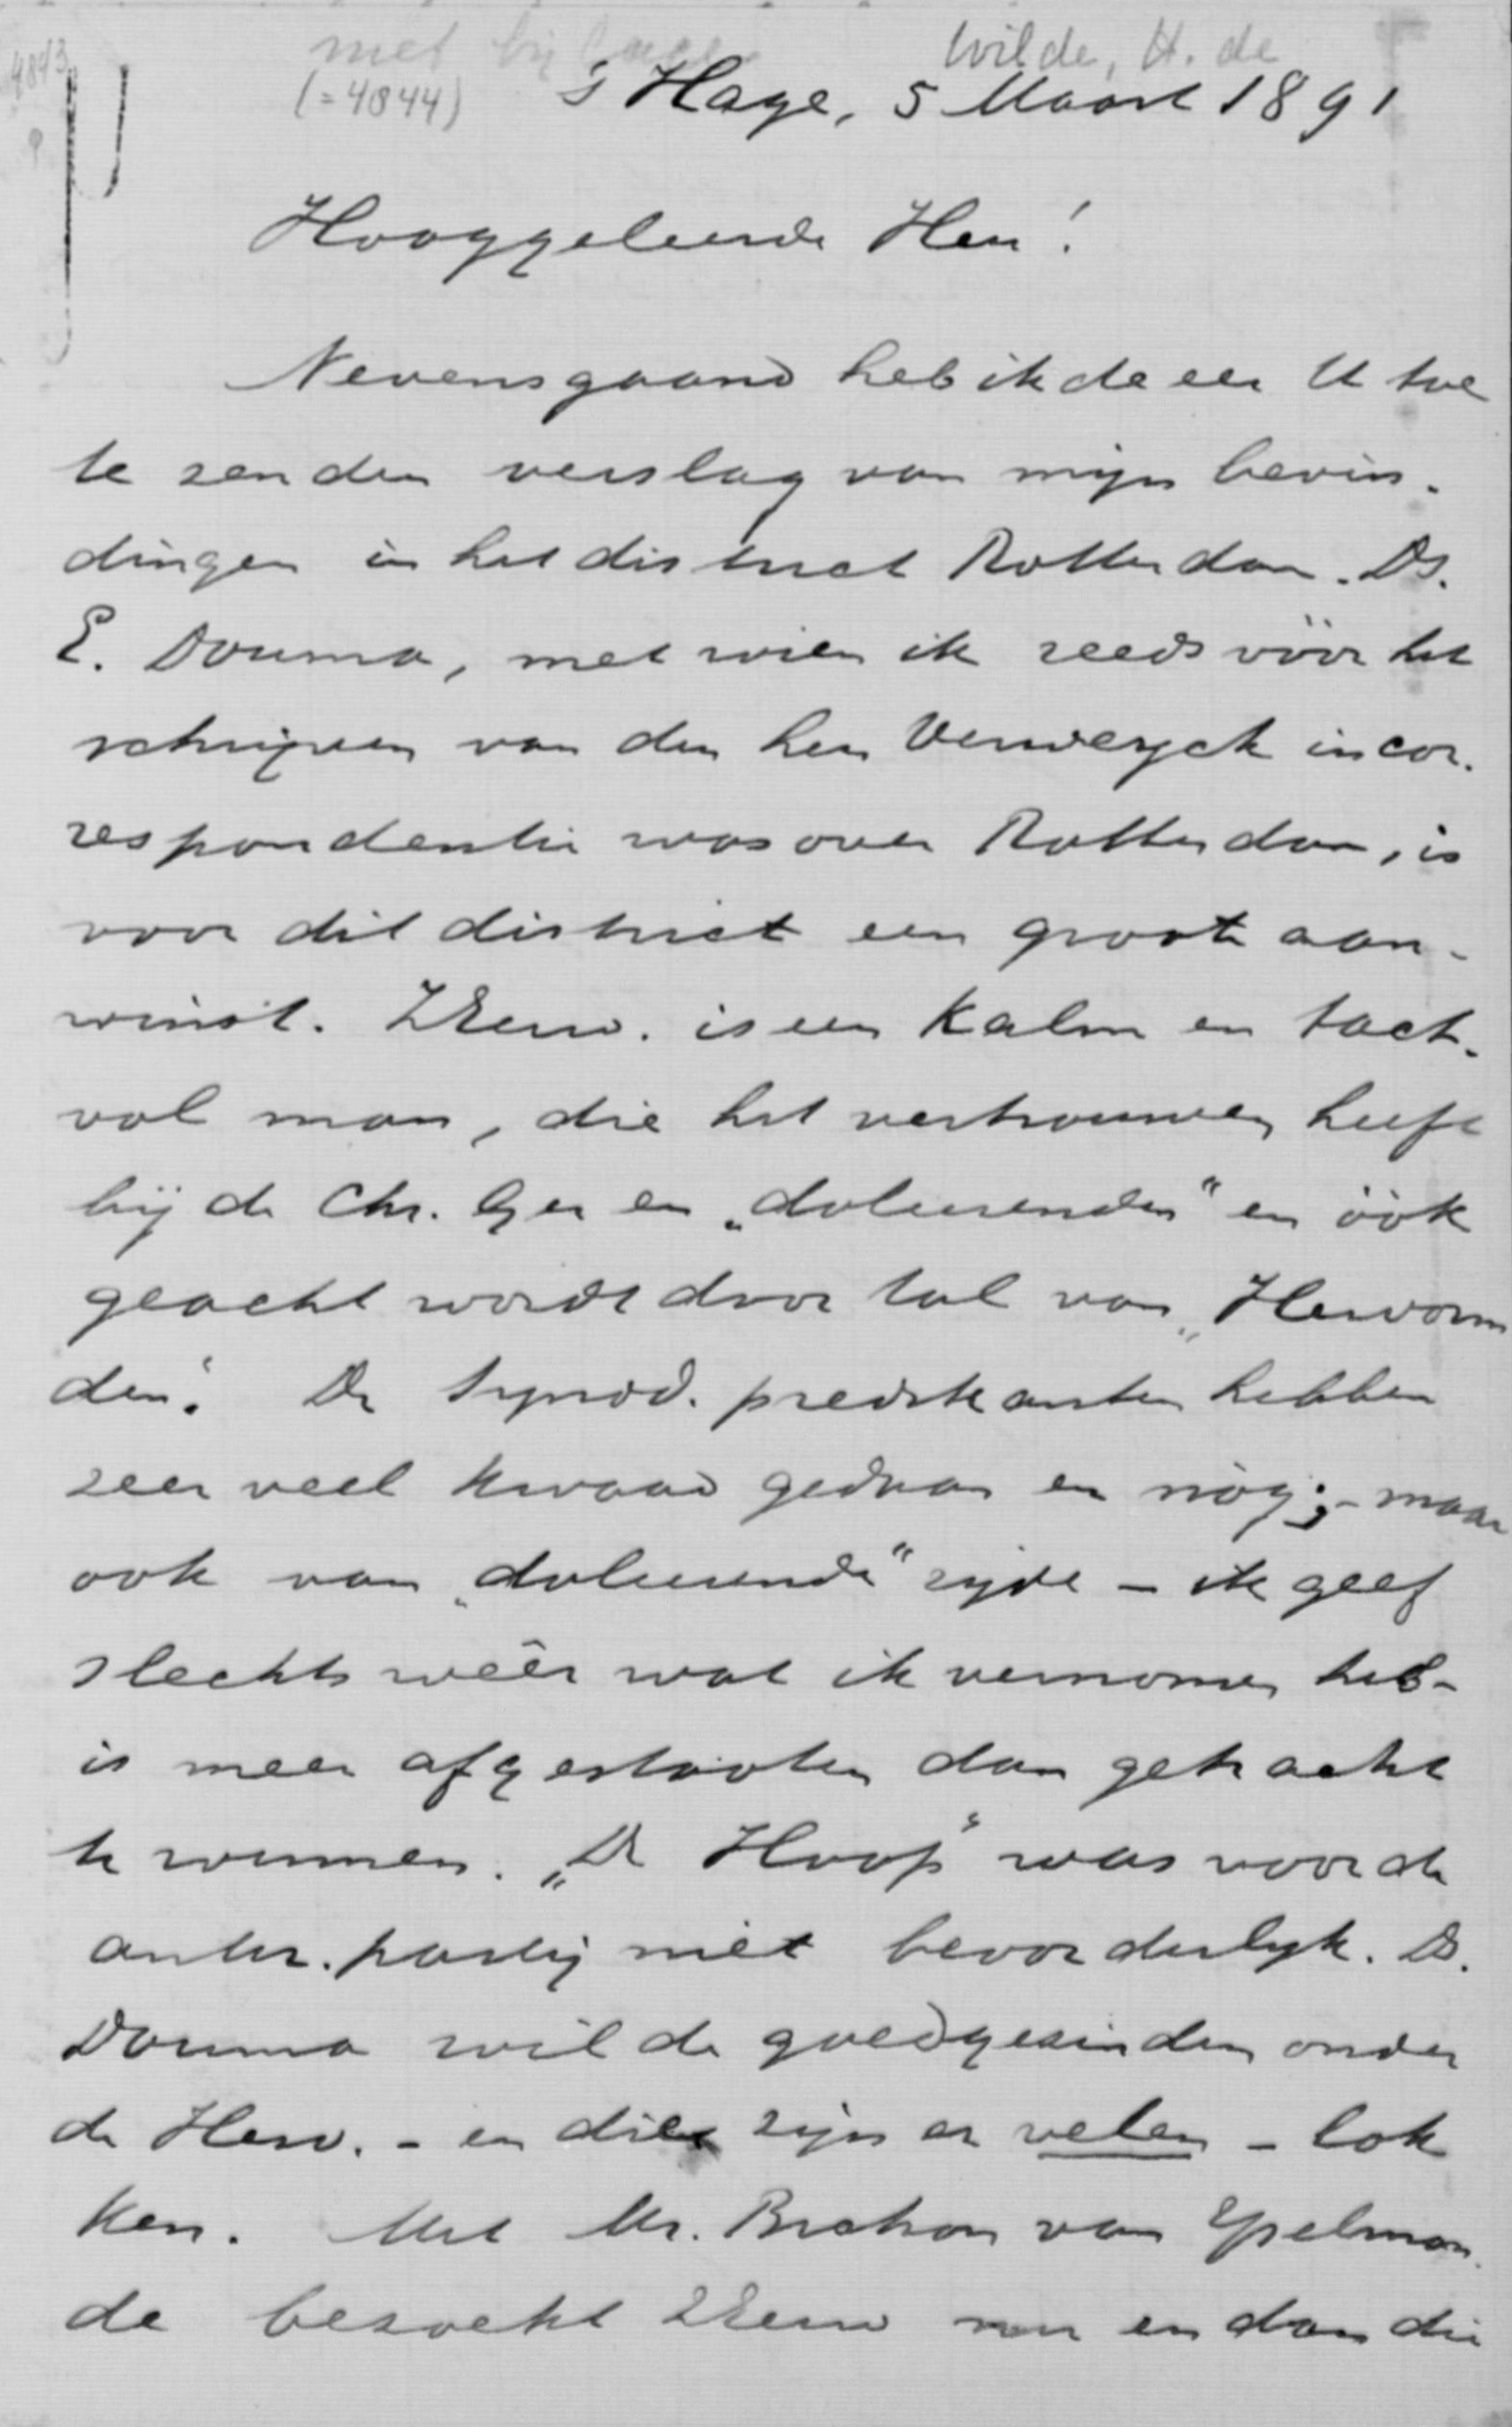 4843
met bijlagen
Wilde, H. de
(=4844)
's Hage, 5 Maart 1891
Hooggeleerde Heer!
Nevensgaand heb ik de eer U toe
te zenden verslag van mijn bevin-
dingen in het district Rotterdam. Ds.
E. Douma, met wien ik reeds vóór het
schrijven van den heer Verweyck in cor-
respondentie was over Rotterdam, is
voor dit district een groote aan-
winst. ZEerw. is een kalm en tact-
vol man, die het vertrouwen heeft
bij de Chr. Ger en „doleerenden" en óók
geacht wordt door tal van „Hervorm
den". De Synod. predikanten hebben
zeer veel kwaad gedaan en nòg; - maar
ook van „doleerende" zijde - ik geef
slechts wêer wat ik vernomen heb -
is meer afgestooten dan getracht
te winnen. „De Hoop" was voor de
antir. partij niet bevorderlyk. Ds.
Douma wil de goedgezinden onder
de Herv. - en dier zijn er velen - lok
ken. Met Mr. Brehon van Yselmon
de bezoekt ZEerw nu en dan die